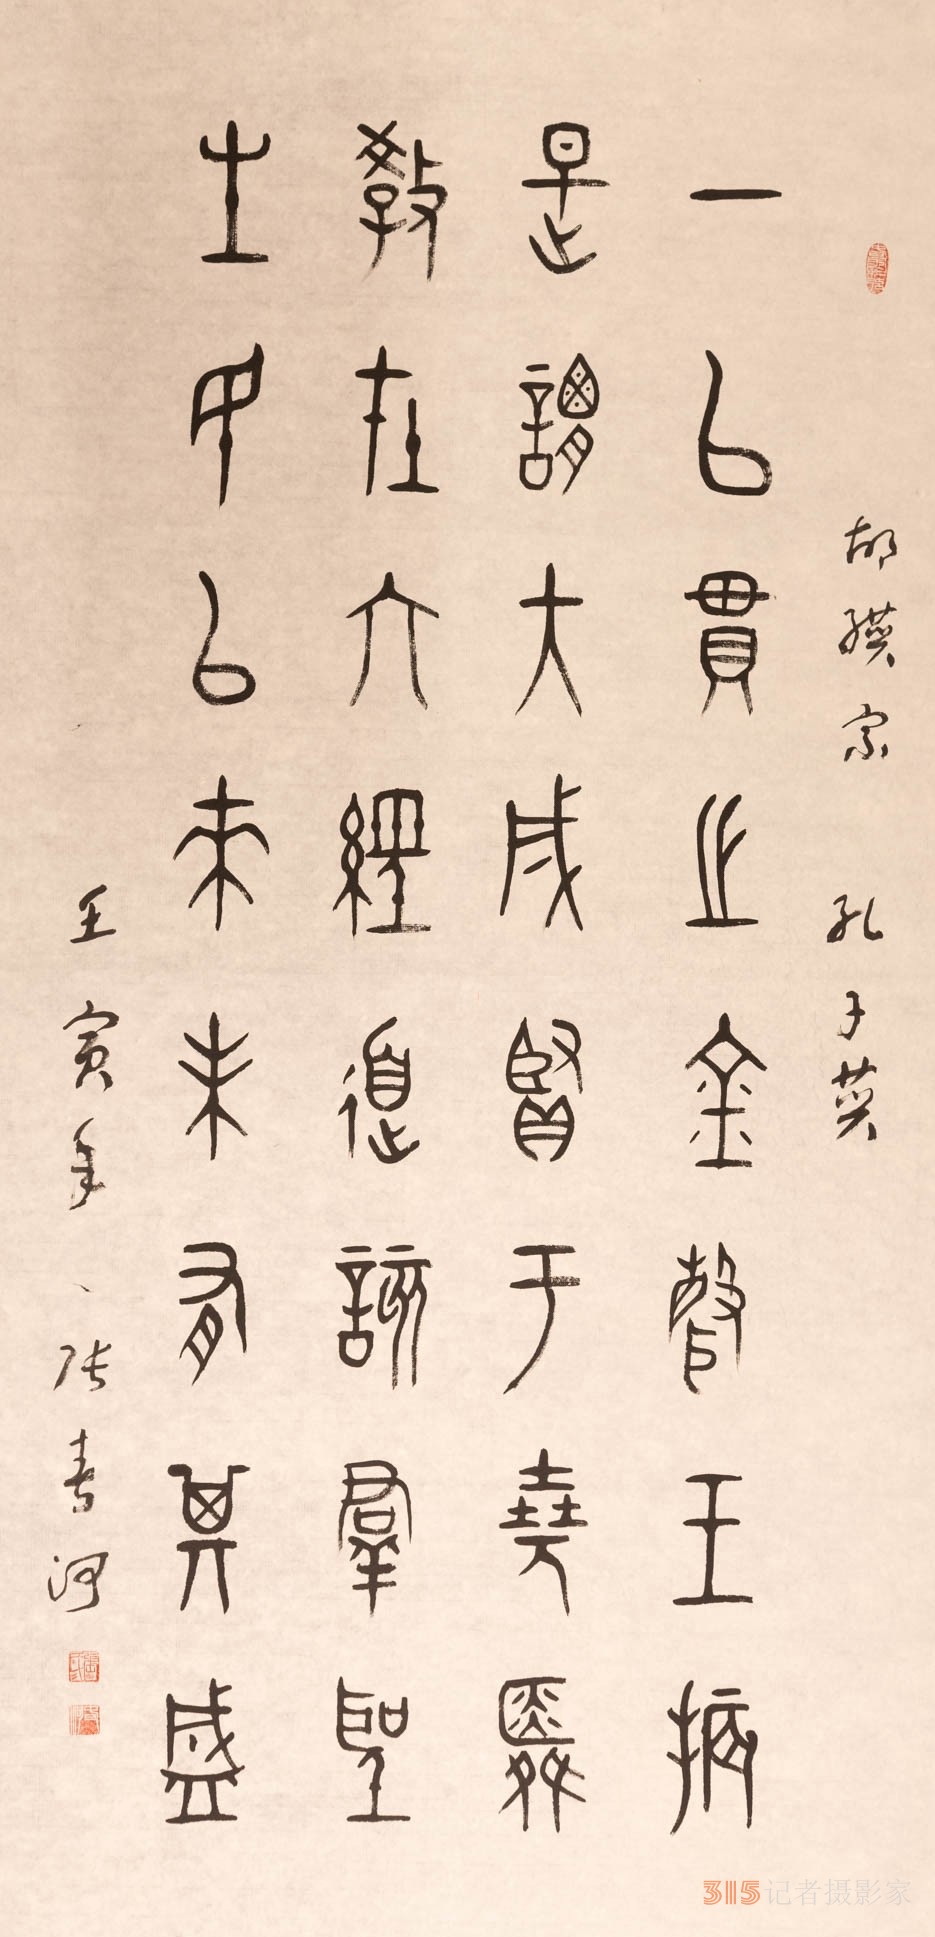 胡纘宗 孔子贊
一以貫之金聲玉振
是謂大成賢于堯舜
教在六經道群聖
生民以來未有其盛
壬寅年 張河
315记者摄影家